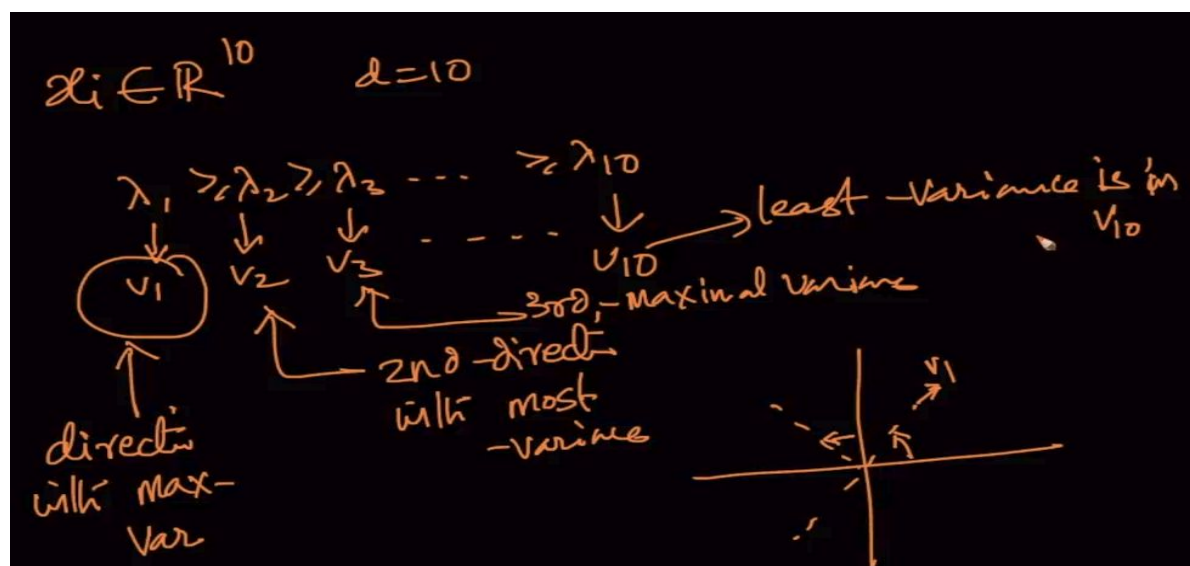 xi ∈ ℝ^10 d=10
λ1 ≥ λ2 ≥ λ3 --- ≥ λ10
v1 v2 v3 - - - - - v10 → least -variance is in v10
3rd,-maximal varians
2nd-directn
with most
-varince
directn
with max-
Var
v1